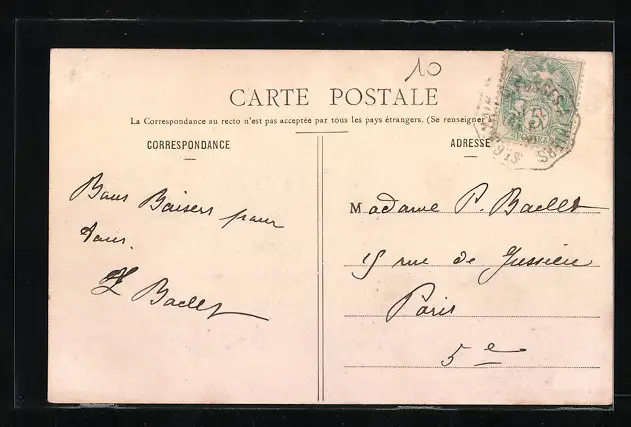 10
CARTE POSTALE
La Correspondance au recto n'est pas acceptée par tous les pays étrangers. (Se renseigner
CORRESPONDANCE
ADRESSE
Bons Baisers pour
tous.
Baelet
Madame P. Baelet
15 rue de Jussieu
Paris
5e